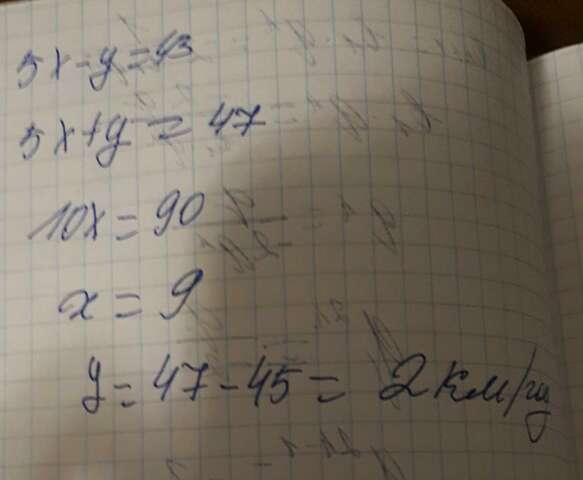 5x-y=43
5x+y=47
10x=90
x=9
y=47-45=2км/гц